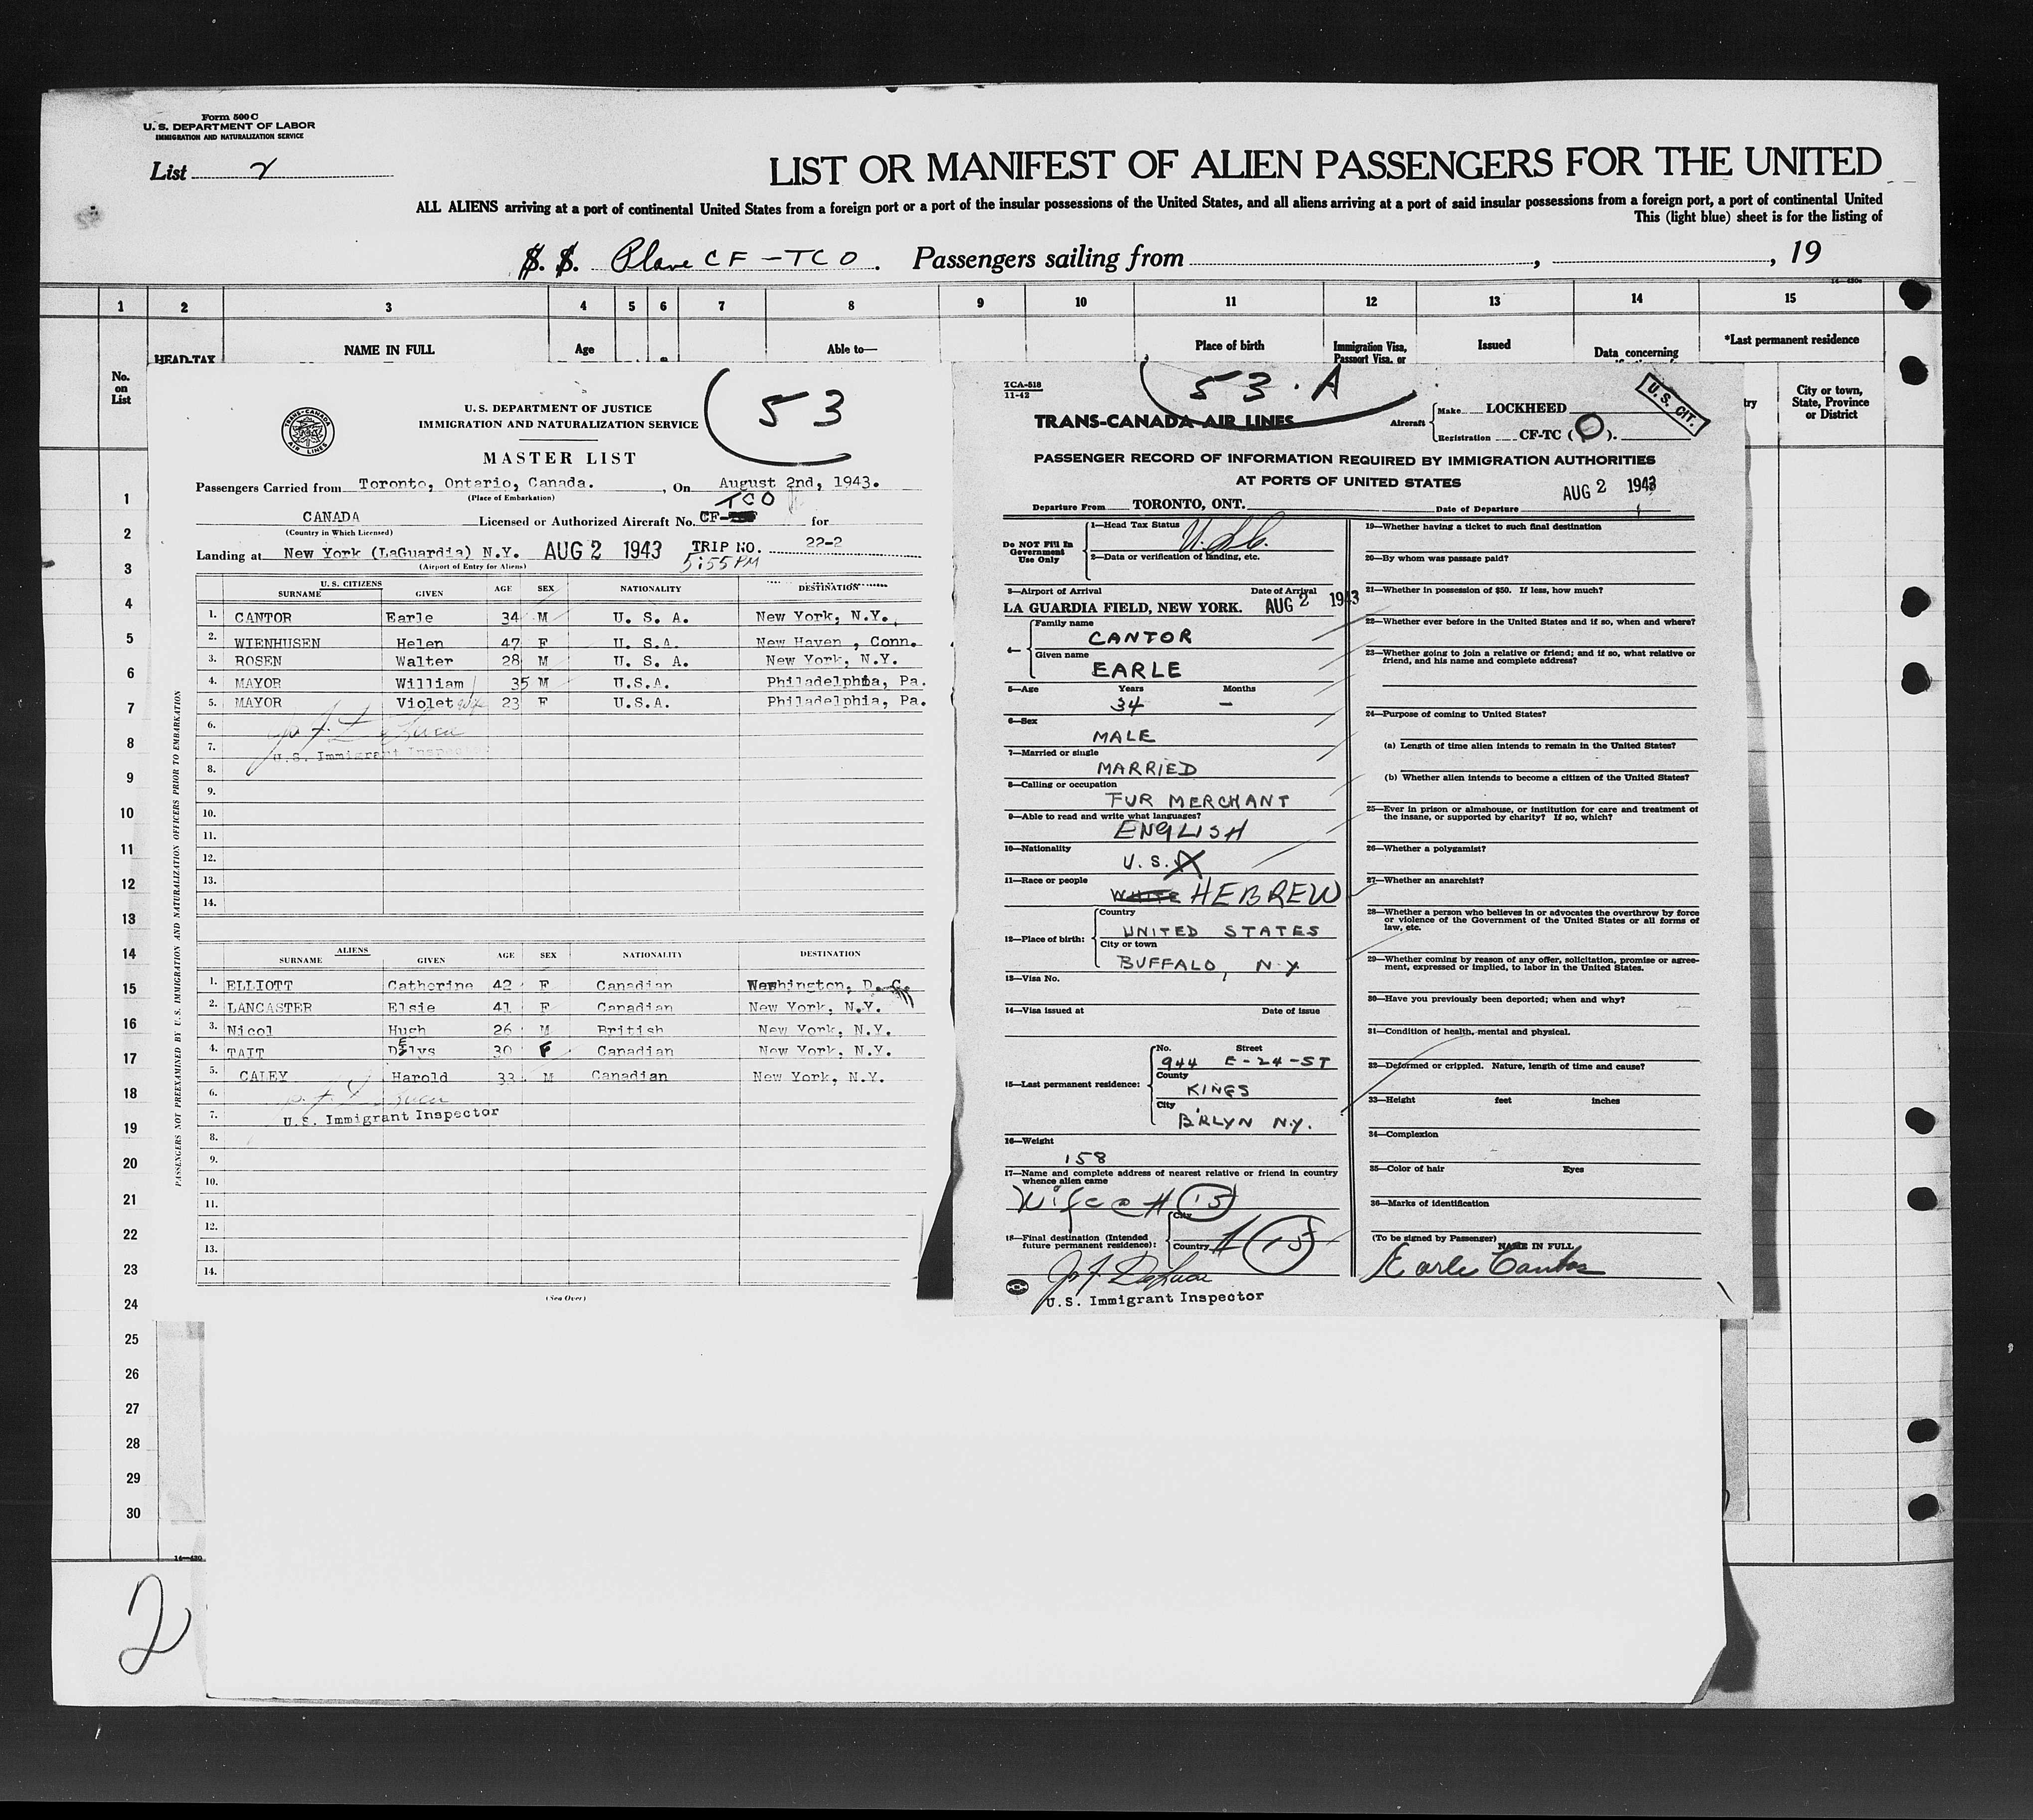 Form 500 C
U. S. DEPARTMENT OF LABOR
IMMIGRATION AND NATURALIZATION SERVICE
List 2
LIST OR MANIFEST OF ALIEN PASSENGERS FOR THE UNITED
ALL ALIENS arriving at a port of continental United States from a foreign port or a port of the insular possessions of the United States, and all aliens arriving at a port of said insular possessions from a foreign port, a port of continental United
This (light blue) sheet is for the listing of
S. S. Plane CF-TCO. Passengers sailing from , , 19
1 2 3 4 5 6 7 8 9 10 11 12 13 14 15
HEAD-TAX NAME IN FULL Age Able to— Place of birth Immigration Visa, Passport Visa, or Issued Data concerning *Last permanent residence
No. on List
City or town, State, Province or District
1
2
3
4
5
6
7
8
9
10
11
12
13
14
15
16
17
18
19
20
21
22
23
24
25
26
27
28
29
30
2
53
TRANS-CANADA AIR LINES
U. S. DEPARTMENT OF JUSTICE
IMMIGRATION AND NATURALIZATION SERVICE
MASTER LIST
Passengers Carried from Toronto, Ontario, Canada. , On August 2nd, 1943.
(Place of Embarkation)
TCO
CANADA Licensed or Authorized Aircraft No. CF- for
(Country in Which Licensed)
Landing at New York (LaGuardia) N.Y. AUG 2 1943 TRIP NO. 22-2
(Airport of Entry for Aliens) 5:55 PM
U.S. CITIZENS
SURNAME GIVEN AGE SEX NATIONALITY DESTINATION
1. CANTOR Earle 34 M U. S. A. New York, N.Y.
2. WIENHUSEN Helen 47 F U. S.A. New Haven , Conn.
3. ROSEN Walter 28 M U. S. A. New York, N.Y.
4. MAYOR William 35 M U.S.A. Philadelphia, Pa.
5. MAYOR Violet 23 F U.S.A. Philadelphia, Pa.
6.
7. U.S. Immigrant Inspector
8.
9.
10.
11.
12.
13.
14.
ALIENS
SURNAME GIVEN AGE SEX NATIONALITY DESTINATION
1. ELLIOTT Catherine 42 F Canadian Washington, D. C.
2. LANCASTER Elsie 41 F Canadian New York, N.Y.
3. Nicol Hugh 26 M British New York, N.Y.
4. TAIT 30 F Canadian New York, N.Y.
5. CALEY Harold 33 M Canadian New York, N.Y.
6.
7. U.S. Immigrant Inspector
8.
9.
10.
11.
12.
13.
14.
(Sea Over)
PASSENGERS NOT PREEXAMINED BY U. S. IMMIGRATION AND NATURALIZATION OFFICERS PRIOR TO EMBARKATION
TCA-518
11-42
53-A
U. S. CIT.
TRANS-CANADA AIR LINES
Aircraft Make LOCKHEED
Registration CF-TC ( O ).
PASSENGER RECORD OF INFORMATION REQUIRED BY IMMIGRATION AUTHORITIES
AT PORTS OF UNITED STATES
AUG 2 1943
Departure From TORONTO, ONT. Date of Departure
Do NOT Fill In Government Use Only
1—Head Tax Status
2—Data or verification of landing, etc.
3—Airport of Arrival Date of Arrival
LA GUARDIA FIELD, NEW YORK. AUG 2 1943
4— Family name
CANTOR
Given name
EARLE
5—Age Years Months
34 —
6—Sex
MALE
7—Married or single
MARRIED
8—Calling or occupation
FUR MERCHANT
9—Able to read and write what languages?
ENGLISH
10—Nationality
U. S. A
11—Race or people
WHITE HEBREW
12—Place of birth: Country
UNITED STATES
City or town
BUFFALO, N.Y
13—Visa No.
14—Visa issued at Date of issue
15—Last permanent residence: No. Street
944 E-24-ST
County
KINGS
City
B'RLYN N.Y.
16—Weight
158
17—Name and complete address of nearest relative or friend in country whence alien came
Wife @ # 15
18—Final destination (Intended future permanent residence): City
Country # 15
U.S. Immigrant Inspector
19—Whether having a ticket to such final destination
20—By whom was passage paid?
21—Whether in possession of $50. If less, how much?
22—Whether ever before in the United States and if so, when and where?
23—Whether going to join a relative or friend; and if so, what relative or friend, and his name and complete address?
24—Purpose of coming to United States?
(a) Length of time alien intends to remain in the United States?
(b) Whether alien intends to become a citizen of the United States?
25—Ever in prison or almshouse, or institution for care and treatment of the insane, or supported by charity? If so, which?
26—Whether a polygamist?
27—Whether an anarchist?
28—Whether a person who believes in or advocates the overthrow by force or violence of the Government of the United States or all forms of law, etc.
29—Whether coming by reason of any offer, solicitation, promise or agreement, expressed or implied, to labor in the United States.
30—Have you previously been deported; when and why?
31—Condition of health, mental and physical.
32—Deformed or crippled. Nature, length of time and cause?
33—Height feet inches
34—Complexion
35—Color of hair Eyes
36—Marks of identification
(To be signed by Passenger)
NAME IN FULL
Earle Cantor